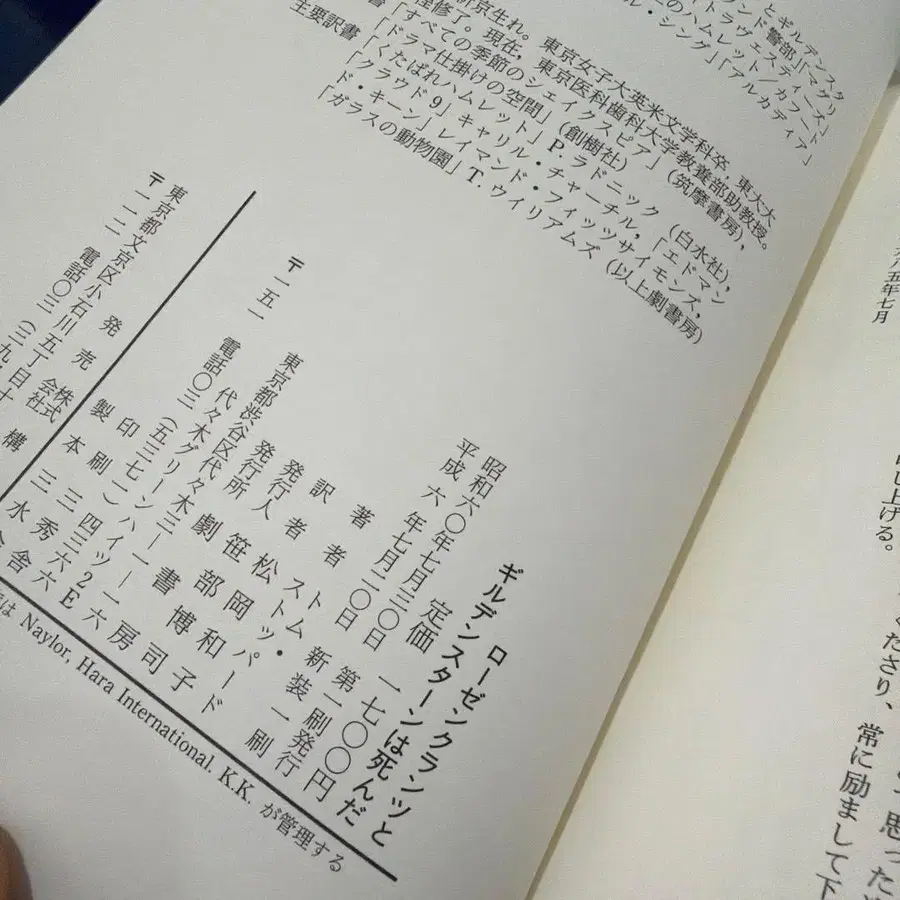 とギルデンスタ
ンド警部」「マグリ
トラヴェスティーズ」
のハムレット/カフート
ル・シング」「アルカディア」
新京生れ。東京女子大英米文学科卒，東大大
程修了。現在，東京医科歯科大学教養部助教授。
書「すべての季節のシェイクスピア」（筑摩書房），
「ドラマ仕掛けの空間」（創樹社）
主要訳書「くたばれハムレット」P. ラドニック（白水社），
「クラウド9」キャリル・チャーチル，「エドマン
ド・キーン」レイマンド・フィッツサイモンズ，
「ガラスの動物園」T. ウィリアムズ（以上劇書房）
ローゼンクランツと
ギルデンスターンは死んだ
定価 一七〇〇円
昭和六〇年七月三〇日 第一刷発行
平成 六 年七月二〇日 新装一刷
著者 トム・ストッパード
訳者 松岡和子
発行人 笹部博司
発行所 劇書房
東京都渋谷区代々木三―一―
代々木グリーンハイツ2E
〒一五一 電話〇三（五三七一）四三六六
印刷 三秀舎
製本 三水舎
発売 株式会社 構
東京都文京区小石川五丁目十
〒一一二 電話〇三（三九
は Naylor, Hara International. K.K. が管理する
五年七月
し上げる。
くださり、
思った
常に励まして下